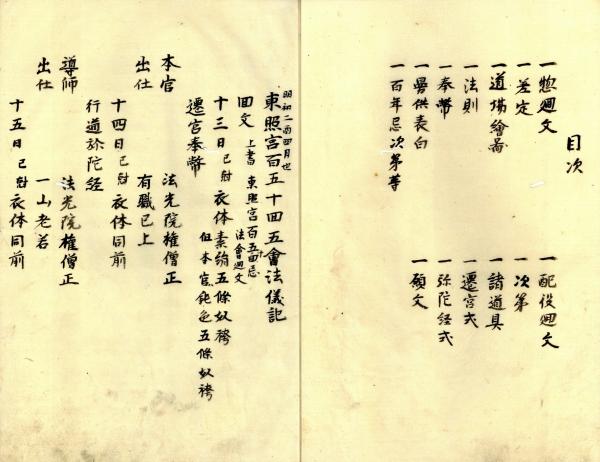 目次
一惣廻文
一差定
一道場繪圖
一法則
一奉幣
一曼供表白
一百年忌次第等
一配役廻文
一次第
一諸道具
一遷宮式
一弥陀経式
一願文
明和二酉四月也
東照宮百五十回忌會法儀記
回文 上書 東照宮百五十回忌
法會廻文
十三日 已尅 衣体素絹五條奴袴
但本官鈍色五條奴袴
遷宮奉幣
本官 法光院権僧正
出仕 有職已上
十四日 已尅 衣体同前
行道弥陀経
導師 法光院権僧正
出仕 一山老若
十五日 已尅 衣体同前